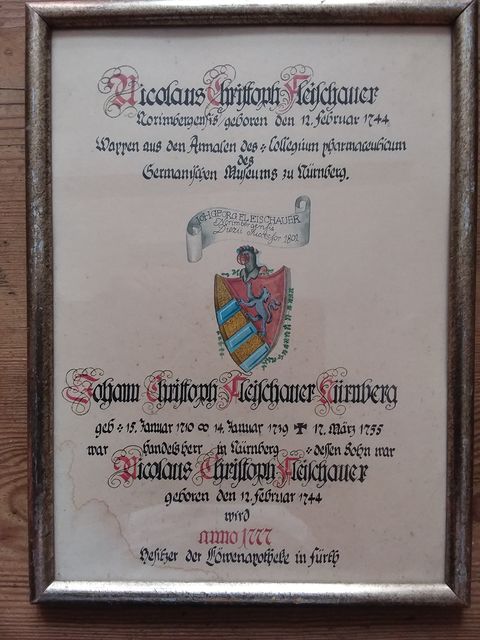 Nicolaus Christoph Fleischauer
Norimbergensis/geboren den 12. Februar 1744
Wappen aus den Annalen des : Collegium pharmaceuticum
des
Germanischen Museums zu Nürnberg.
GEORG FLEISCHAUER
Norimbergensis
Successor 1801
Johann Christoph Fleischauer Nürnberg
geb : 15. Januar 1710 ∞ 14. Januar 1739 ✠ 17. März 1755
war Handelsherr in Nürnberg : dessen Sohn war
Nicolaus Christoph Fleischauer
geboren den 12. Februar 1744
wird
anno 1777
Besitzer der Löwenapotheke in Fürth